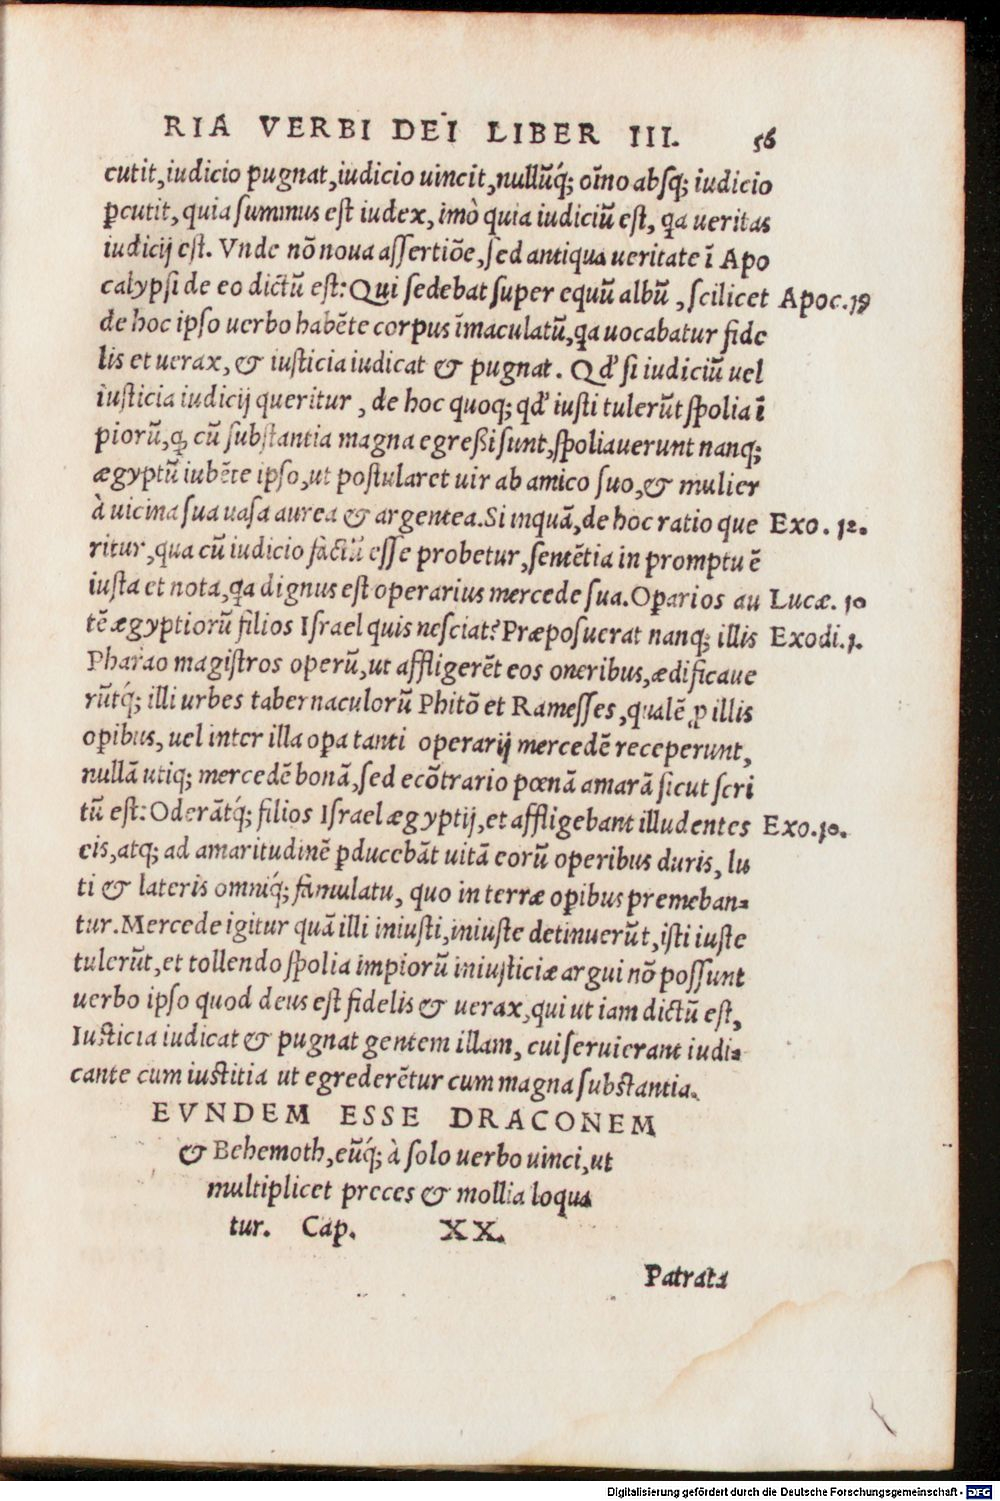 RIA VERBI DEI LIBER III. 56
cutit, iudicio pugnat, iudicio uincit, nullũq́; oĩno absq; iudicio
ꝑcutit, quia summus est iudex, imò quia iudiciũ est, qa ueritas
iudicij est. Vnde nõ noua assertiõe, sed antiqua ueritate ĩ Apo
calypsi de eo dictũ est: Qui sedebat super equũ albũ, scilicet Apoc. 19
de hoc ipso uerbo habẽte corpus ĩmaculatũ, qa uocabatur fide
lis et uerax, & iusticia iudicat & pugnat. Qd' si iudiciũ uel
iusticia iudicij queritur, de hoc quoq; qd' iusti tulerũt spolia ĩ
piorũ, q cũ substantia magna egreßi sunt, spoliauerunt nanq;
ægyptũ iubẽte ipso, ut postularet uir ab amico suo, & mulier
à uicina sua uasa aurea & argentea. Si inquã, de hoc ratio que Exo. 12.
ritur, qua cũ iudicio factũ esse probetur, sentẽtia in promptu ẽ
iusta et nota, qa dignus est operarius mercede sua. Oꝑarios au Lucæ. 10
tẽ ægyptiorũ filios Israel quis nesciat? Præposuerat nanq; illis Exodi. 1.
Pharao magistros operũ, ut affligerẽt eos oneribus, ædificaue
rũtq́; illi urbes tabernaculorũ Phitõ et Ramesses, qualẽ ꝓ illis
oꝑibus, uel inter illa oꝑa tanti operarij mercedẽ receperunt,
nullã utiq; mercedẽ bonã, sed ecõtrario pœnã amarã sicut scri
tũ est: Oderãtq́; filios Israel ægyptij, et affligebant illudentes Exo. 10.
eis, atq; ad amaritudinẽ ꝑducebãt uitã eorũ operibus duris, lu
ti & lateris omniq́; famulatu, quo in terræ oꝑibus premeban=
tur. Mercede igitur quã illi iniusti, iniuste detinuerũt, isti iuste
tulerũt, et tollendo spolia impiorũ iniusticiæ argui nõ possunt
uerbo ipso quod deus est fidelis & uerax, qui ut iam dictũ est,
Iusticia iudicat & pugnat gentem illam, cui seruierant iudi=
cante cum iustitia ut egrederẽtur cum magna substantia.
EVNDEM ESSE DRACONEM
& Behemoth, eũq́; à solo uerbo uinci, ut
multiplicet preces & mollia loqua
tur. Cap. XX.
Patrata
Digitalisierung gefördert durch die Deutsche Forschungsgemeinschaft - DFG